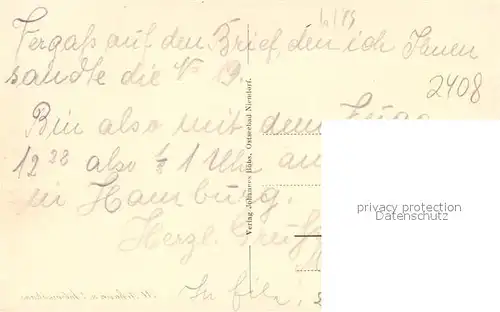 Vergaß auf den Brief, den ich Ihnen
sandte die № 19.
2408
Bin also mit dem Zuge
12 28 also ½ 1 Uhr an
in Hamburg.
Herzl. Grüße
In Eile!
Verlag Johannes Höbs, Ostseebad Niendorf.
privacy protection
Datenschutz